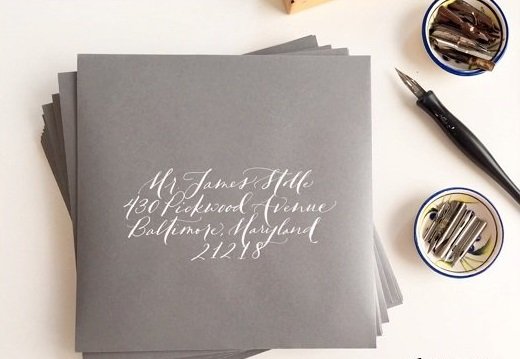 Mr James Stolle
430 Pickwood Avenue
Baltimore, Maryland
21218